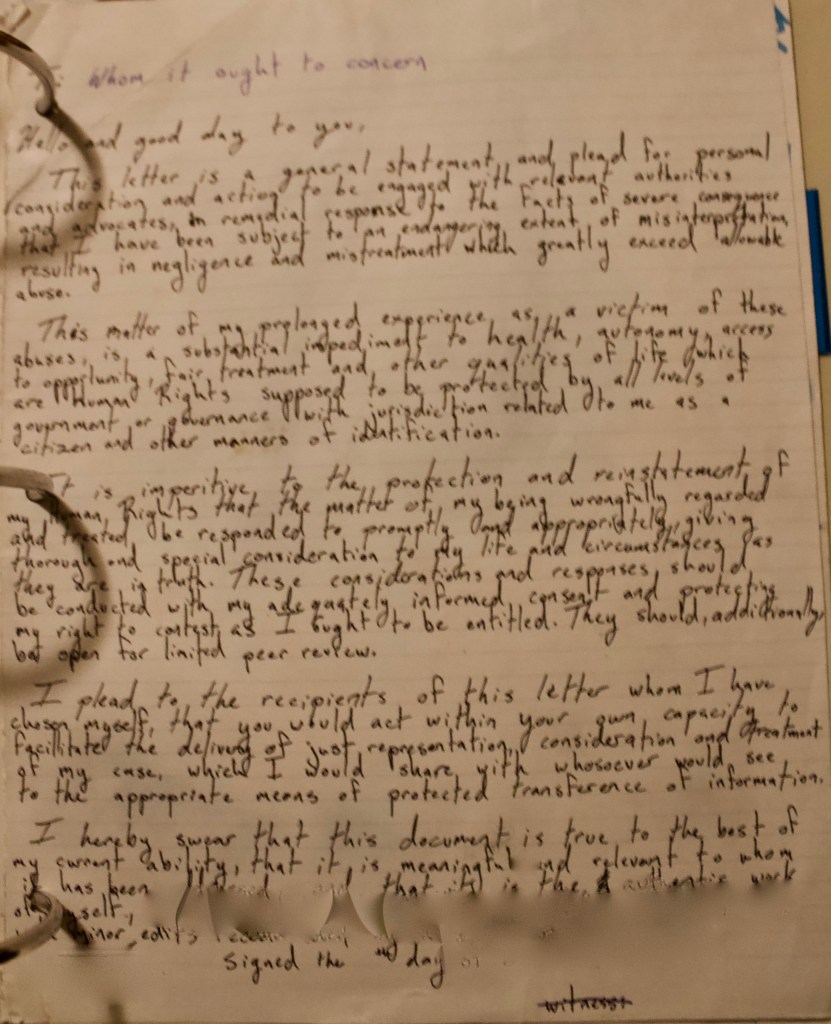 Whom it ought to concern
Hello and good day to you,
This letter is a general statement, and plead for personal
consideration and action to be engaged with relevant authorities
and advocates, in remedial response to the facts of severe consequence
that I have been subject to an endangering extent of misinterpretation,
resulting in negligence and mistreatment which greatly exceed allowable
abuse.
This matter of my prolonged experience, as, a victim of these
abuses, is a substantial impediment to health, autonomy, access
to opportunity, fair treatment and other qualities of life which
are Human Rights supposed to be protected by all levels of
government or governance with jurisdiction related to me as a
citizen and other manners of identification.
It is imperitive to the protection and reinstatement of
my Human Rights that the matter of my being wrongfully regarded
and treated, be responded to promptly and appropriately, giving
thorough and special consideration to my life and circumstances, as
they are in truth. These considerations and responses, should
be conducted with my adequately informed consent and protecting
my right to contest, as I ought to be entitled. They should, additionally,
be open for limited peer review.
I plead to the recipients of this letter whom I have
chosen myself, that you would act within your own capacity to
facilitate the delivery of just representation, consideration and treatment
of my case, which I would share with whosoever would see
to the appropriate means of protected transference of information.
I hereby swear that this document is true to the best of
my current ability, that it is meaningful and relevant to whom
it has been and that it is the authentic work
of myself,
minor edits
Signed the day of
witness: